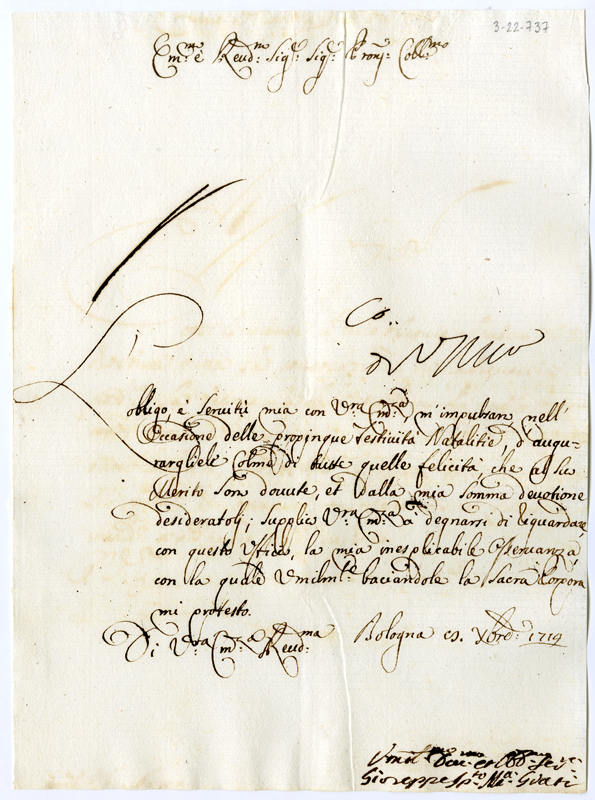 3-22-737
Em.mo è Reud.mo Sig.r Sig.r Pron. Coll.mo
Co..
L'
obligo, è seruitù mia con V.ra Em.za, m'impulsano nell'
Occasione delle propinque festiuità Natalitie, d'augu-
rargliele Colme di tutte quelle felicità, che al Suo
Merito son douute, et dalla mia somma deuotione
desideratoli; supplico V.ra Em.za à degnarsi di riguardare,
con questo Vfficio, la mia inesplicabile Osseruanza
con la quale Vmilm.te baciandole la Sacra Porpora
mi protesto.
Di V.ra Em.za Reud.ma Bologna 1719
Giuseppe